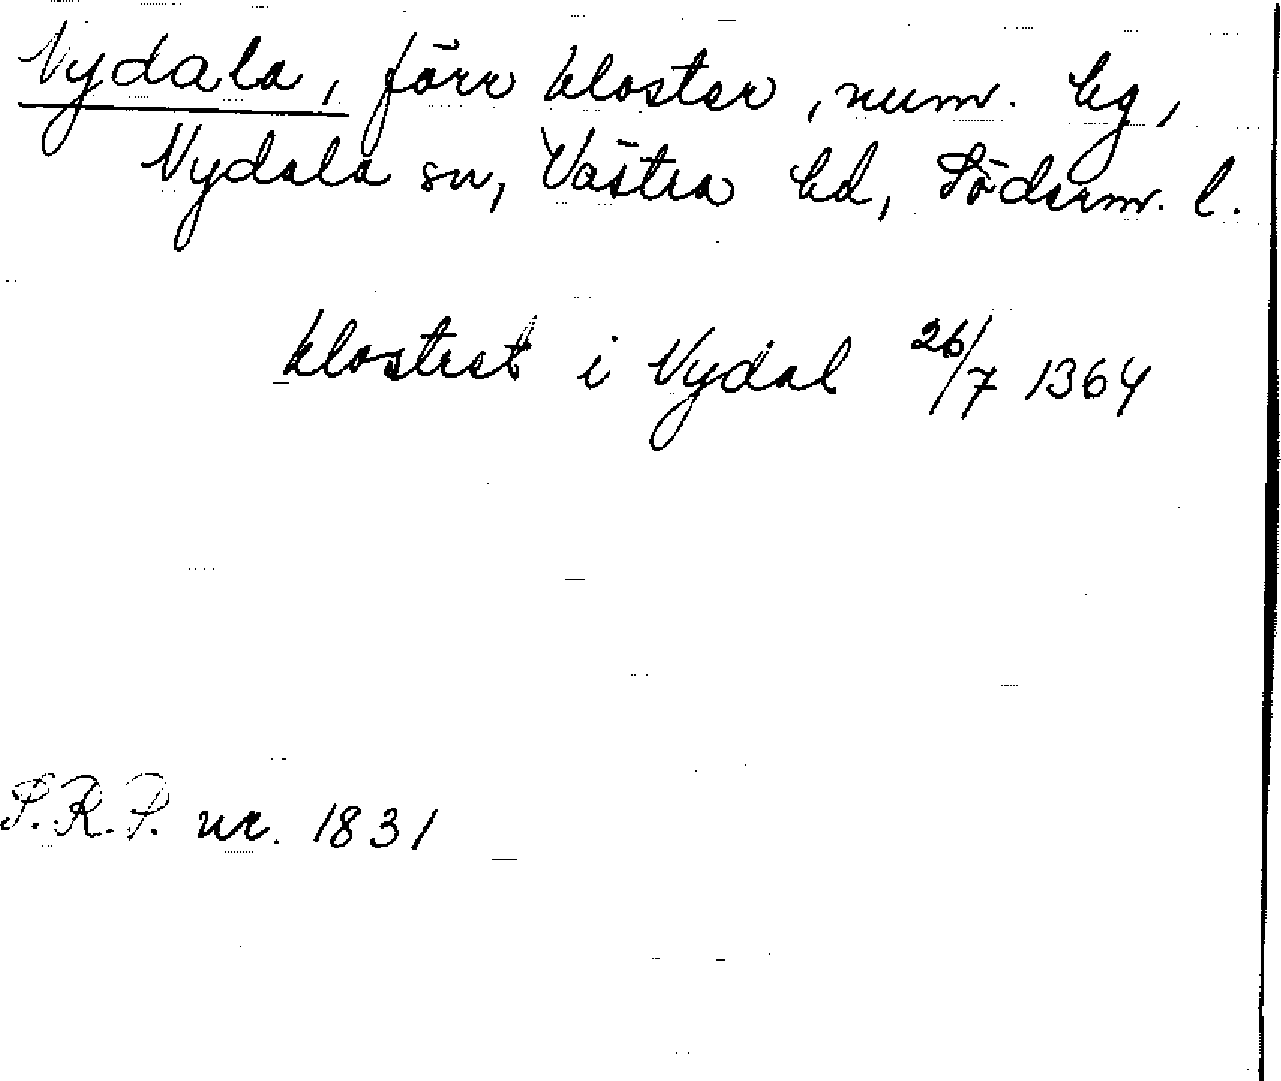 Nydala, förr kloster, num. hg,
Nydala sn, Västra hd, Söderm. l.
klostret i Nydal 26/7 1364
S.R.P. nr. 1831